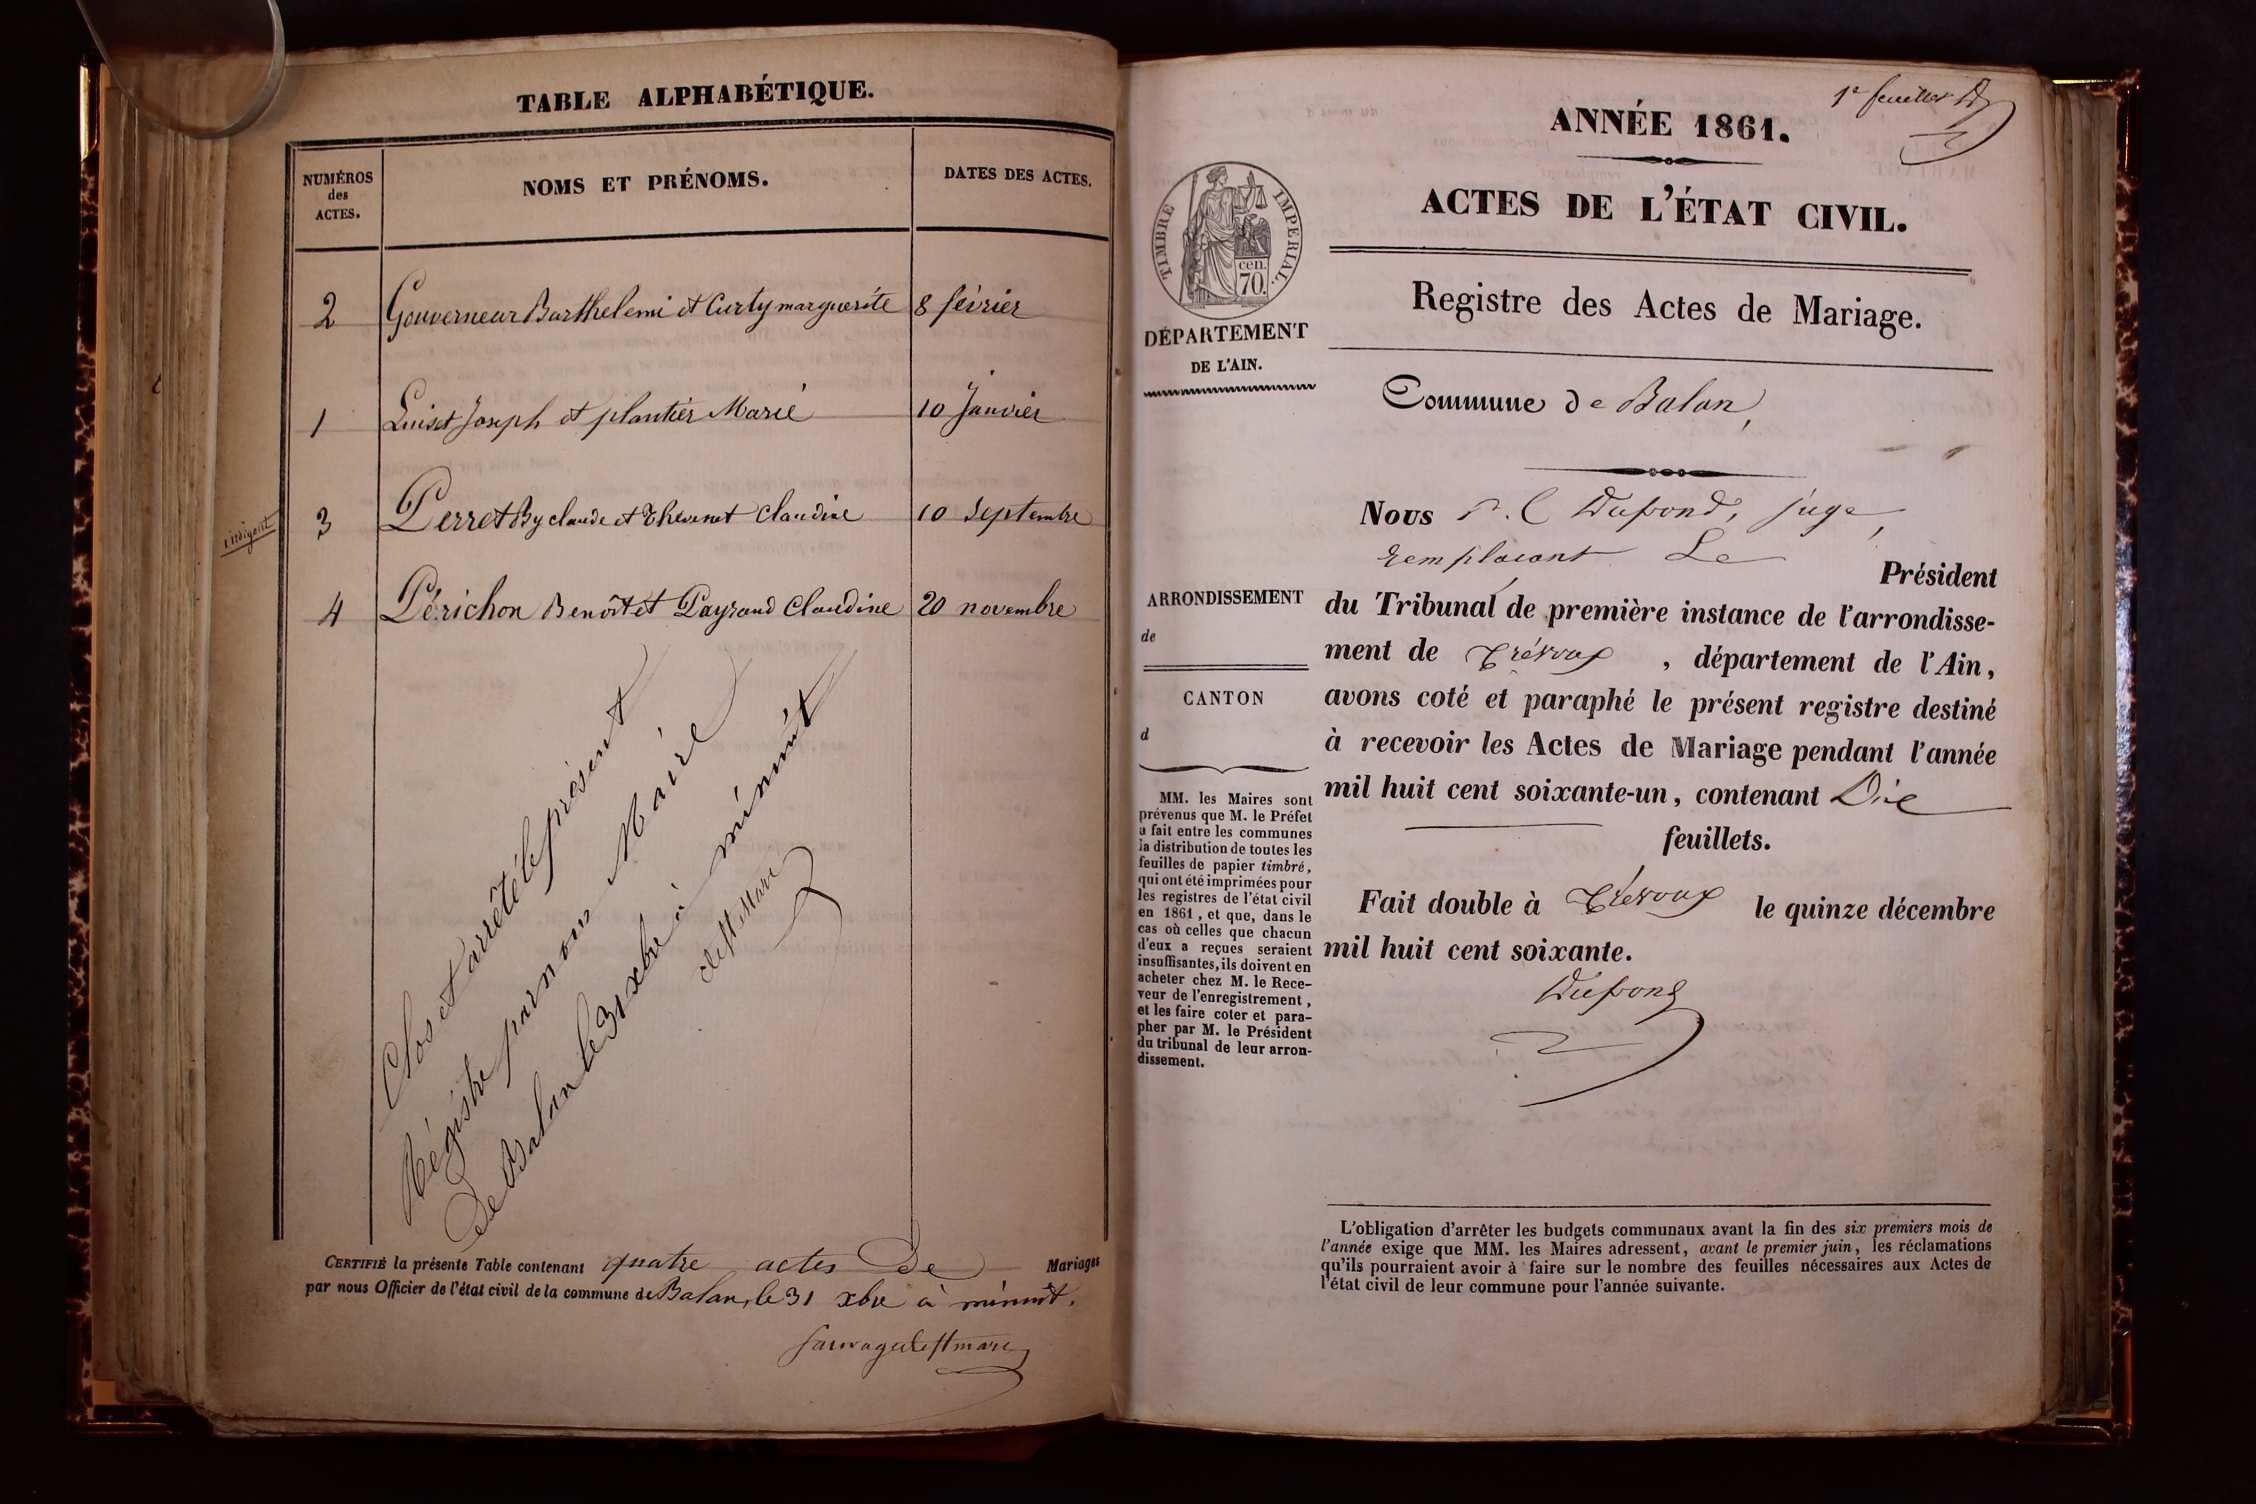 TABLE ALPHABÉTIQUE.
NUMÉROS des ACTES.
NOMS ET PRÉNOMS.
DATES DES ACTES.
2 Gouverneur Barthelemi et Curty marguerite 8 février
1 Luiset Joseph et plantier Marie 10 Janvier
indigent 3 Perret By claude et Thévenet Claudine 10 septembre
4 Périchon Benoît et Payraud Claudine 20 novembre
Clos et arrêté le présent
Régistre par nous Maire
de Balan le 31 xbre à minuit
de St Marc
CERTIFIÉ la présente Table contenant quatre actes de Mariages
par nous Officier de l'état civil de la commune de Balan, le 31 xbre à minuit.
Sauvage de St marc
1er feuillet
ANNÉE 1861.
ACTES DE L'ÉTAT CIVIL.
TIMBRE IMPÉRIAL.
cen.
70.
DÉPARTEMENT
DE L'AIN.
Registre des Actes de Mariage.
Commune de Balan,
Nous Dupond, juge,
remplaçant Le Président
du Tribunal de première instance de l'arrondisse-
ment de Trévoux, département de l'Ain,
avons coté et paraphé le présent registre destiné
à recevoir les Actes de Mariage pendant l'année
mil huit cent soixante-un, contenant Dix
feuillets.
Fait double à Trévoux le quinze décembre
mil huit cent soixante.
Dupond
ARRONDISSEMENT
de
CANTON
d
MM. les Maires sont
prévenus que M. le Préfet
a fait entre les communes
la distribution de toutes les
feuilles de papier timbré,
qui ont été imprimées pour
les registres de l'état civil
en 1861, et que, dans le
cas où celles que chacun
d'eux a reçues seraient
insuffisantes, ils doivent en
acheter chez M. le Rece-
veur de l'enregistrement,
et les faire coter et para-
pher par M. le Président
du tribunal de leur arron-
dissement.
L'obligation d'arrêter les budgets communaux avant la fin des six premiers mois de
l'année exige que MM. les Maires adressent, avant le premier juin, les réclamations
qu'ils pourraient avoir à faire sur le nombre des feuilles nécessaires aux Actes de
l'état civil de leur commune pour l'année suivante.